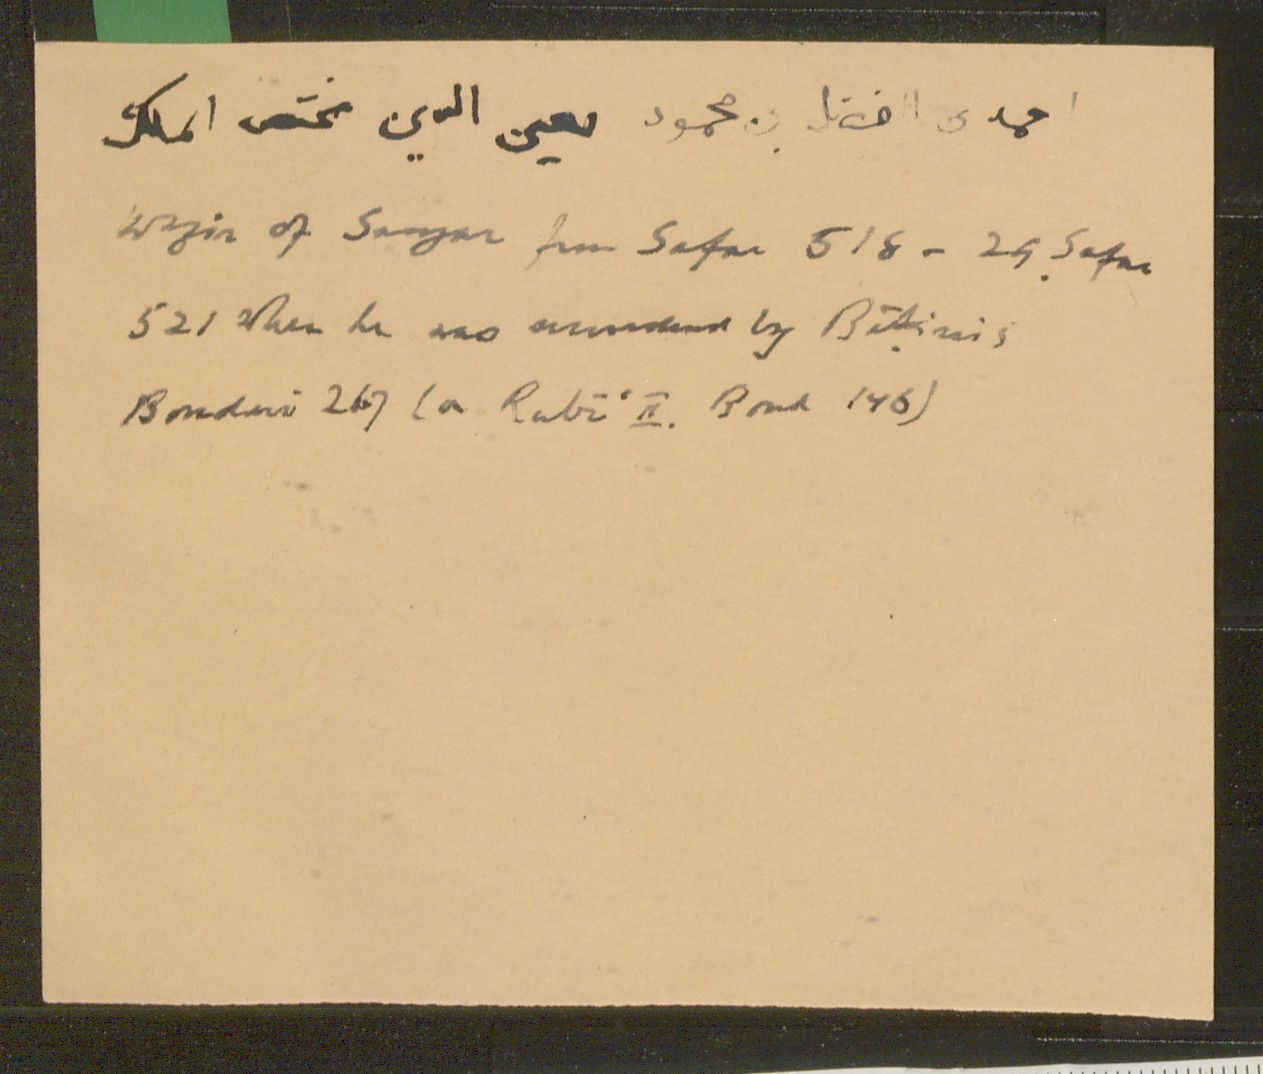 احمد بن الفضل بن محمود معين الدين مختص الملك
Wazir of Sanjar from Safar 518 - 29 Safar
521 when he was murdered by Bāṭinis
Bondari 267 (or Rabīʿ II. Bond 146)